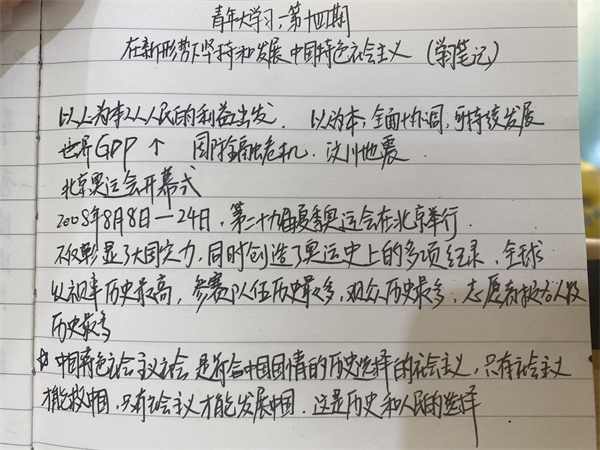 青年大学习,第十四期
在新形势下坚持和发展中国特色社会主义 (学习笔记)
以人为本 以人民的利益出发. 以人为本,全面协调,可持续发展
世界GDP ↑ 国际金融危机. 汶川地震
北京奥运会开幕式
2008年8月8日—24日,第二十九届夏季奥运会在北京举行.
不仅彰显了大国实力,同时创造了奥运史上的多项纪录.全球
收视率历史最高,参赛队伍历史最多,观众历史最多,志愿者报名人数
历史最多
中国特色社会主义社会,是符合中国国情的历史选择的社会主义,只有社会主义
才能救中国,只有社会主义才能发展中国.这是历史和人民的选择